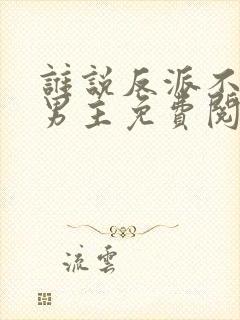 誰說反派不
男主免費閱
流雲